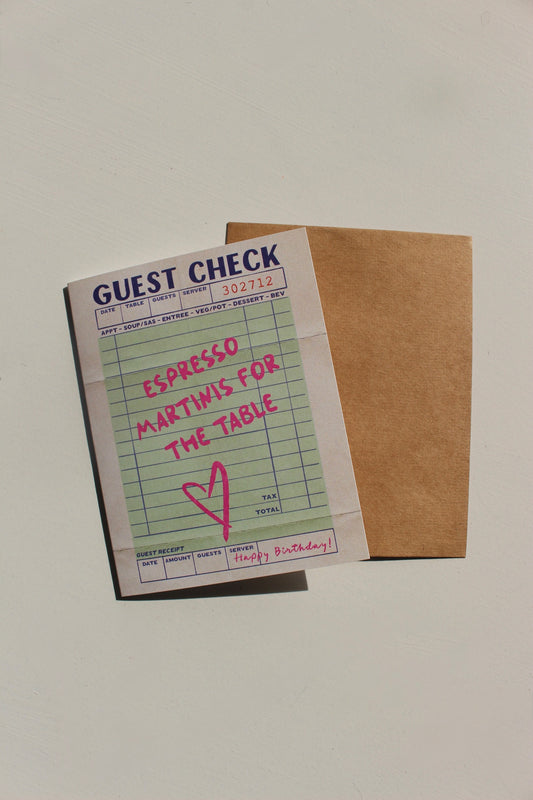 GUEST CHECK
DATE TABLE GUESTS SERVER 302712
APPT - SOUP/SAS - ENTREE - VEG/POT - DESSERT - BEV
ESPRESSO
MARTINIS FOR
THE TABLE
TAX
TOTAL
GUEST RECEIPT
DATE AMOUNT GUESTS SERVER Happy Birthday!